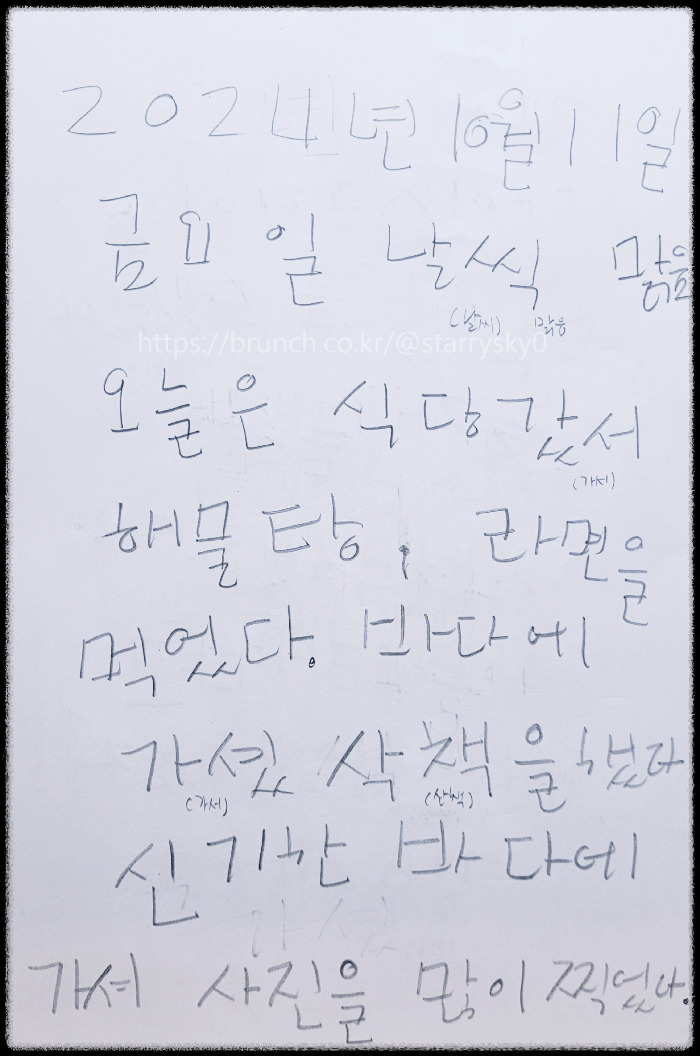 2024년 10월 11일
금요일 날씩 맑음
(날씨) 맑음
https://brunch.co.kr/@starrysky0
오늘은 식당갔서
(가서)
해물탕, 라면을
먹었다. 바다에
가셨 삭책을했다
(가서) (산책)
신기한 바다에
가셔 사진을 많이 찍었다.